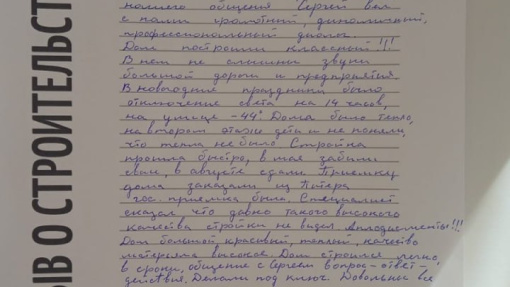 ЫВ О СТРОИТЕЛЬСТ
нашего общения Сергей вёл
с нами грамотный, динамичный,
профессиональный диалог.
Дом построили классный!!!
В нем не слышны звуки
большой дороги и предприятия.
В новогодние праздники было
отключение света на 14 часов,
на улице -44° Дома было тепло,
на втором этаже дети и не поняли,
что тепла не было. Стройка
прошла быстро, в мае забили
сваи, в августе сдали. Приемку
дома заказали из Питера
гос. приемка была. Специалист
сказал, что давно такого высокого
качества стройки не видел. Аплодисменты!!!
Дом большой, красивый, теплый, качество
материала высокое. Дом строился легко,
в сроки, общение с Сергеем вопрос-ответ-
действия. Делали под ключ. Довольны все